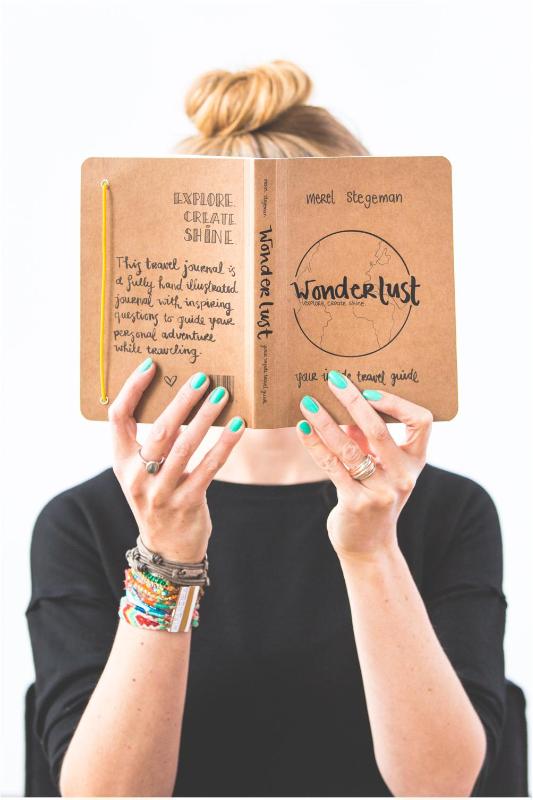 EXPLORE
CREATE
SHINE
This travel journal is
a fully hand illustrated
journal with inspiring
questions to guide your
personal adventure
while traveling.
merel stegeman Wonderlust your inside travel guide
merel stegeman
Wonderlust
EXPLORE, CREATE, SHINE
your inside travel guide